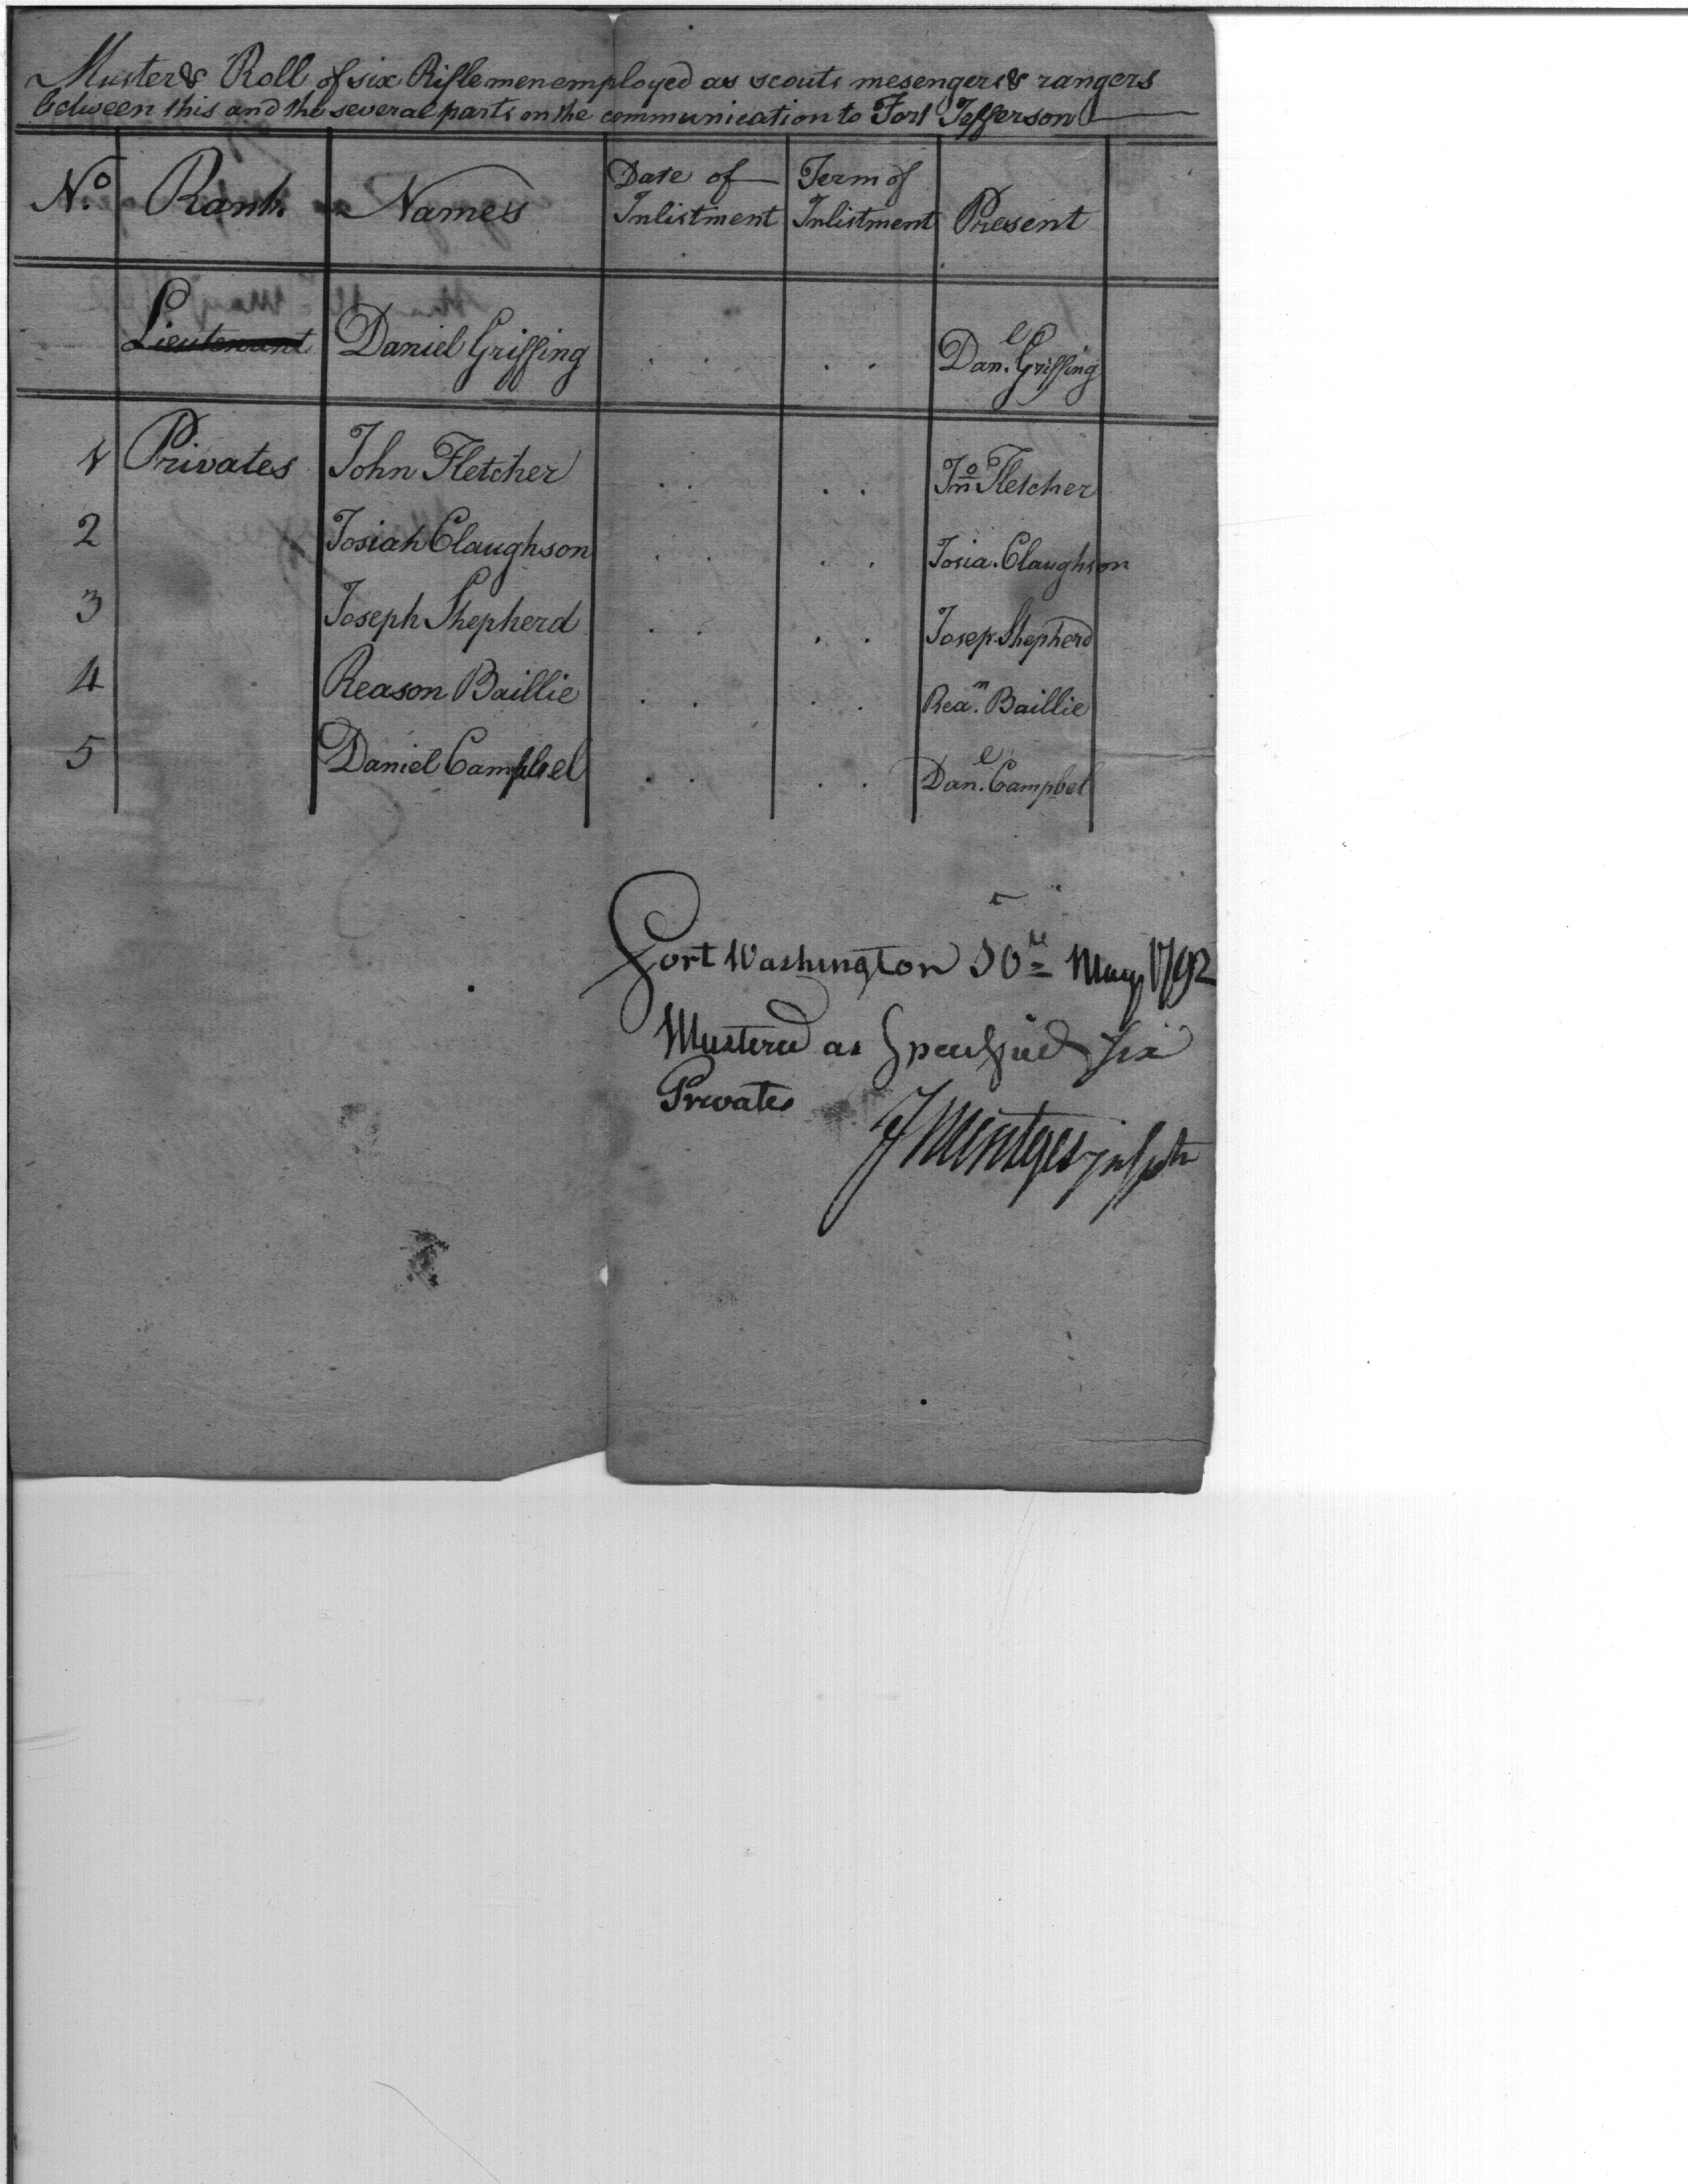 Muster & Roll of six Riflemen employed as scouts mesengers & rangers
between this and the several parts on the communication to Fort Jefferson
No. Rank Names Date of Inlistment Term of Inlistment Present
Lieutenant Daniel Griffing . . . . Danl. Griffing
1 Privates John Fletcher . . . . Jno Fletcher
2 Josiah Claughson . . . . Josia. Claughson
3 Joseph Shepherd . . . . Josep. Shepherd
4 Reason Baillie . . . . Rean. Baillie
5 Daniel Campbel . . . . Danl. Campbel
Fort Washington May 1792
Mustered as Specified Six
Privates
F Mentges Insptr